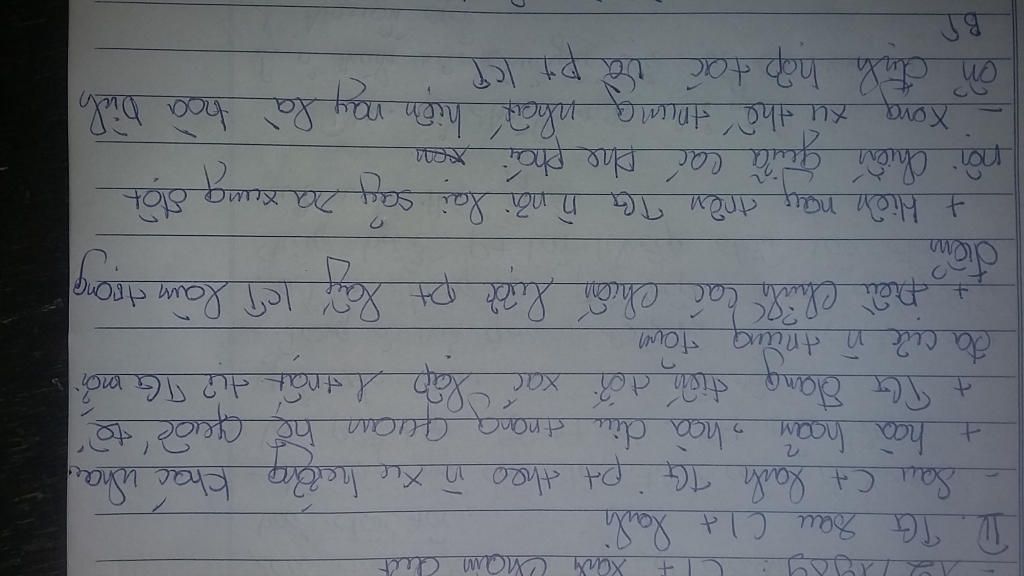 - 12/1989: C/t lạnh chấm dứt
II. TG sau C/t lạnh
- Sau C+ lạnh TG pt theo n̄ xu hướng khác nhau
+ hoà hoãn, hoà dịu trong quan hệ quốc tế
+ TG đang tiến tới xác lập 1 trật tự TG mới
đa cực n̄ trung tâm
+ điều chỉnh các chiến lược pt lấy KT làm trọng
điểm
+ Hiện nay trên TG n̄ nơi lại xảy ra xung đột
nội chiến giữa các phe phái
- Xong xu thế chung nhất hiện nay là hoà bình
ổn định hợp tác và pt KT
BT